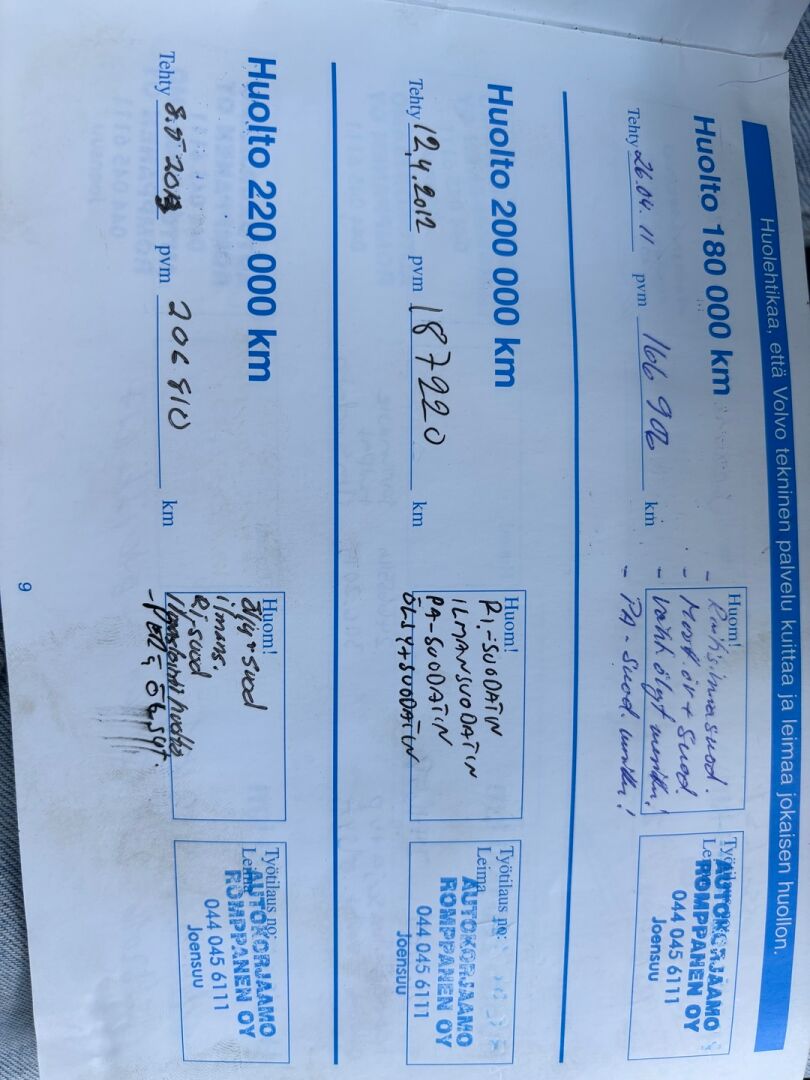 Huolehtikaa, että Volvo tekninen palvelu kuittaa ja leimaa jokaisen huollon.
Huolto 180 000 km
Tehty 26.04.11 pvm 166 906 km
Huom!
- Raitisilmasuod.
- Moot.öl+suod.
- vaiht.öljyt
- PA-suod.
Työtilaus no:
Leima
AUTOKORJAAMO
ROMPPANEN OY
044 045 6111
Joensuu
Huolto 200 000 km
Tehty 12.4.2012 pvm 187220 km
Huom!
RI.-SUODATIN
ILMANSUODATIN
PA-SUODATIN
ÖLJY+SUODATIN
Työtilaus no:
Leima
AUTOKORJAAMO
ROMPPANEN OY
044 045 6111
Joensuu
Huolto 220 000 km
Tehty 8.5 2013 pvm 206 910 km
Huom!
öljy+suod
ilmans.
Ri,suod
Ilmastointi huolto
Työtilaus no:
Leima
AUTOKORJAAMO
ROMPPANEN OY
044 045 6111
Joensuu
9